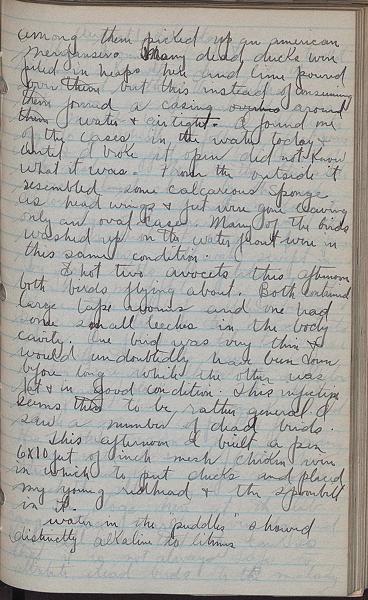 among them picked up an american
merganser. Many dead ducks were
piled in heaps here and lime poured
over them but this instead of consuming
them formed a casing around
them water & airtight. I found one
of the cases in the water today &
until I broke it open did not know
what it was. From the outside it
resembled some calcareous sponge
as head wings & feet were gone leaving
only an oval case. Many of the birds
washed up on the water front were in
this same condition.
Shot two avocets this afternoon
both birds flying about. Both contained
large tape worms and one had
some small leeches in the body
cavity. One bird was very thin &
would undoubtedly have been down
before long while the other was
fat & in good condition. This infection
seems to be rather general. I
saw a number of dead birds.
This afternoon I built a pen
6x10 feet of inch mesh chicken wire
in which to put ducks and placed
my young redhead & the spoonbill
in it.
Water in the puddles showed
distinctly alkaline to litmus